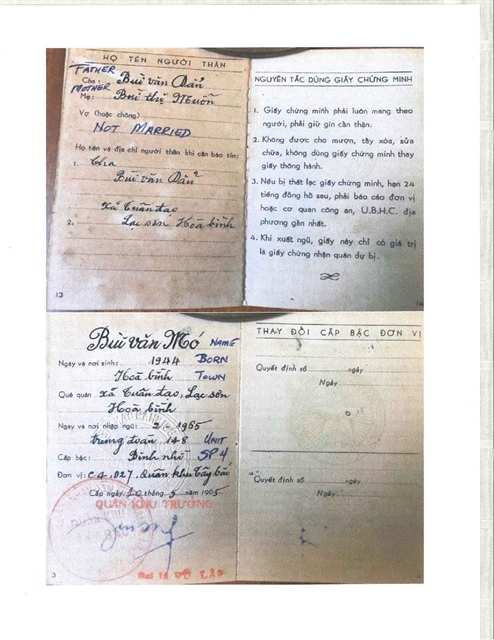 HỌ TÊN NGƯỜI THÂN
FATHER
Cha: Bùi văn Dần
MOTHER
Mẹ: Bùi thị Muôn
Vợ (hoặc chồng)
NOT MARRIED
Họ tên và địa chỉ người thân khi cần báo tin:
1. Cha
Bùi văn Dần
xã Tuân đạo
2. Lạc sơn Hoà bình
13
NGUYÊN TẮC DÙNG GIẤY CHỨNG MINH
1. Giấy chứng minh phải luôn mang theo
người, phải giữ gìn cẩn thận.
2. Không được cho mượn, tẩy xóa, sửa
chữa, không dùng giấy chứng minh thay
giấy thông hành.
3. Nếu bị thất lạc giấy chứng minh, hạn 24
tiếng đồng hồ sau, phải báo cáo đơn vị
hoặc cơ quan công an, U.B.H.C. địa
phương gần nhất.
4. Khi xuất ngũ, giấy này chỉ có giá trị
là giấy chứng nhận quân dự bị.
Bùi văn Mó NAME
Ngày và nơi sinh: 1944 BORN
Hoà bình TOWN
Quê quán xã Tuân đạo, Lạc sơn
Hoà bình
Ngày và nơi nhập ngũ: 2-1965
trung đoàn 148 UNIT
Cấp bậc: Binh nhì SP4
Đơn vị: C4, D27, Quân khu Tây bắc
Cấp ngày 20 tháng 5 năm 1965
QUÂN KHU TRƯỞNG
VŨ LẬP
3
THAY ĐỔI CẤP BẬC ĐƠN VỊ
Quyết định số ngày
Ngày
Quyết định số ngày
Ngày